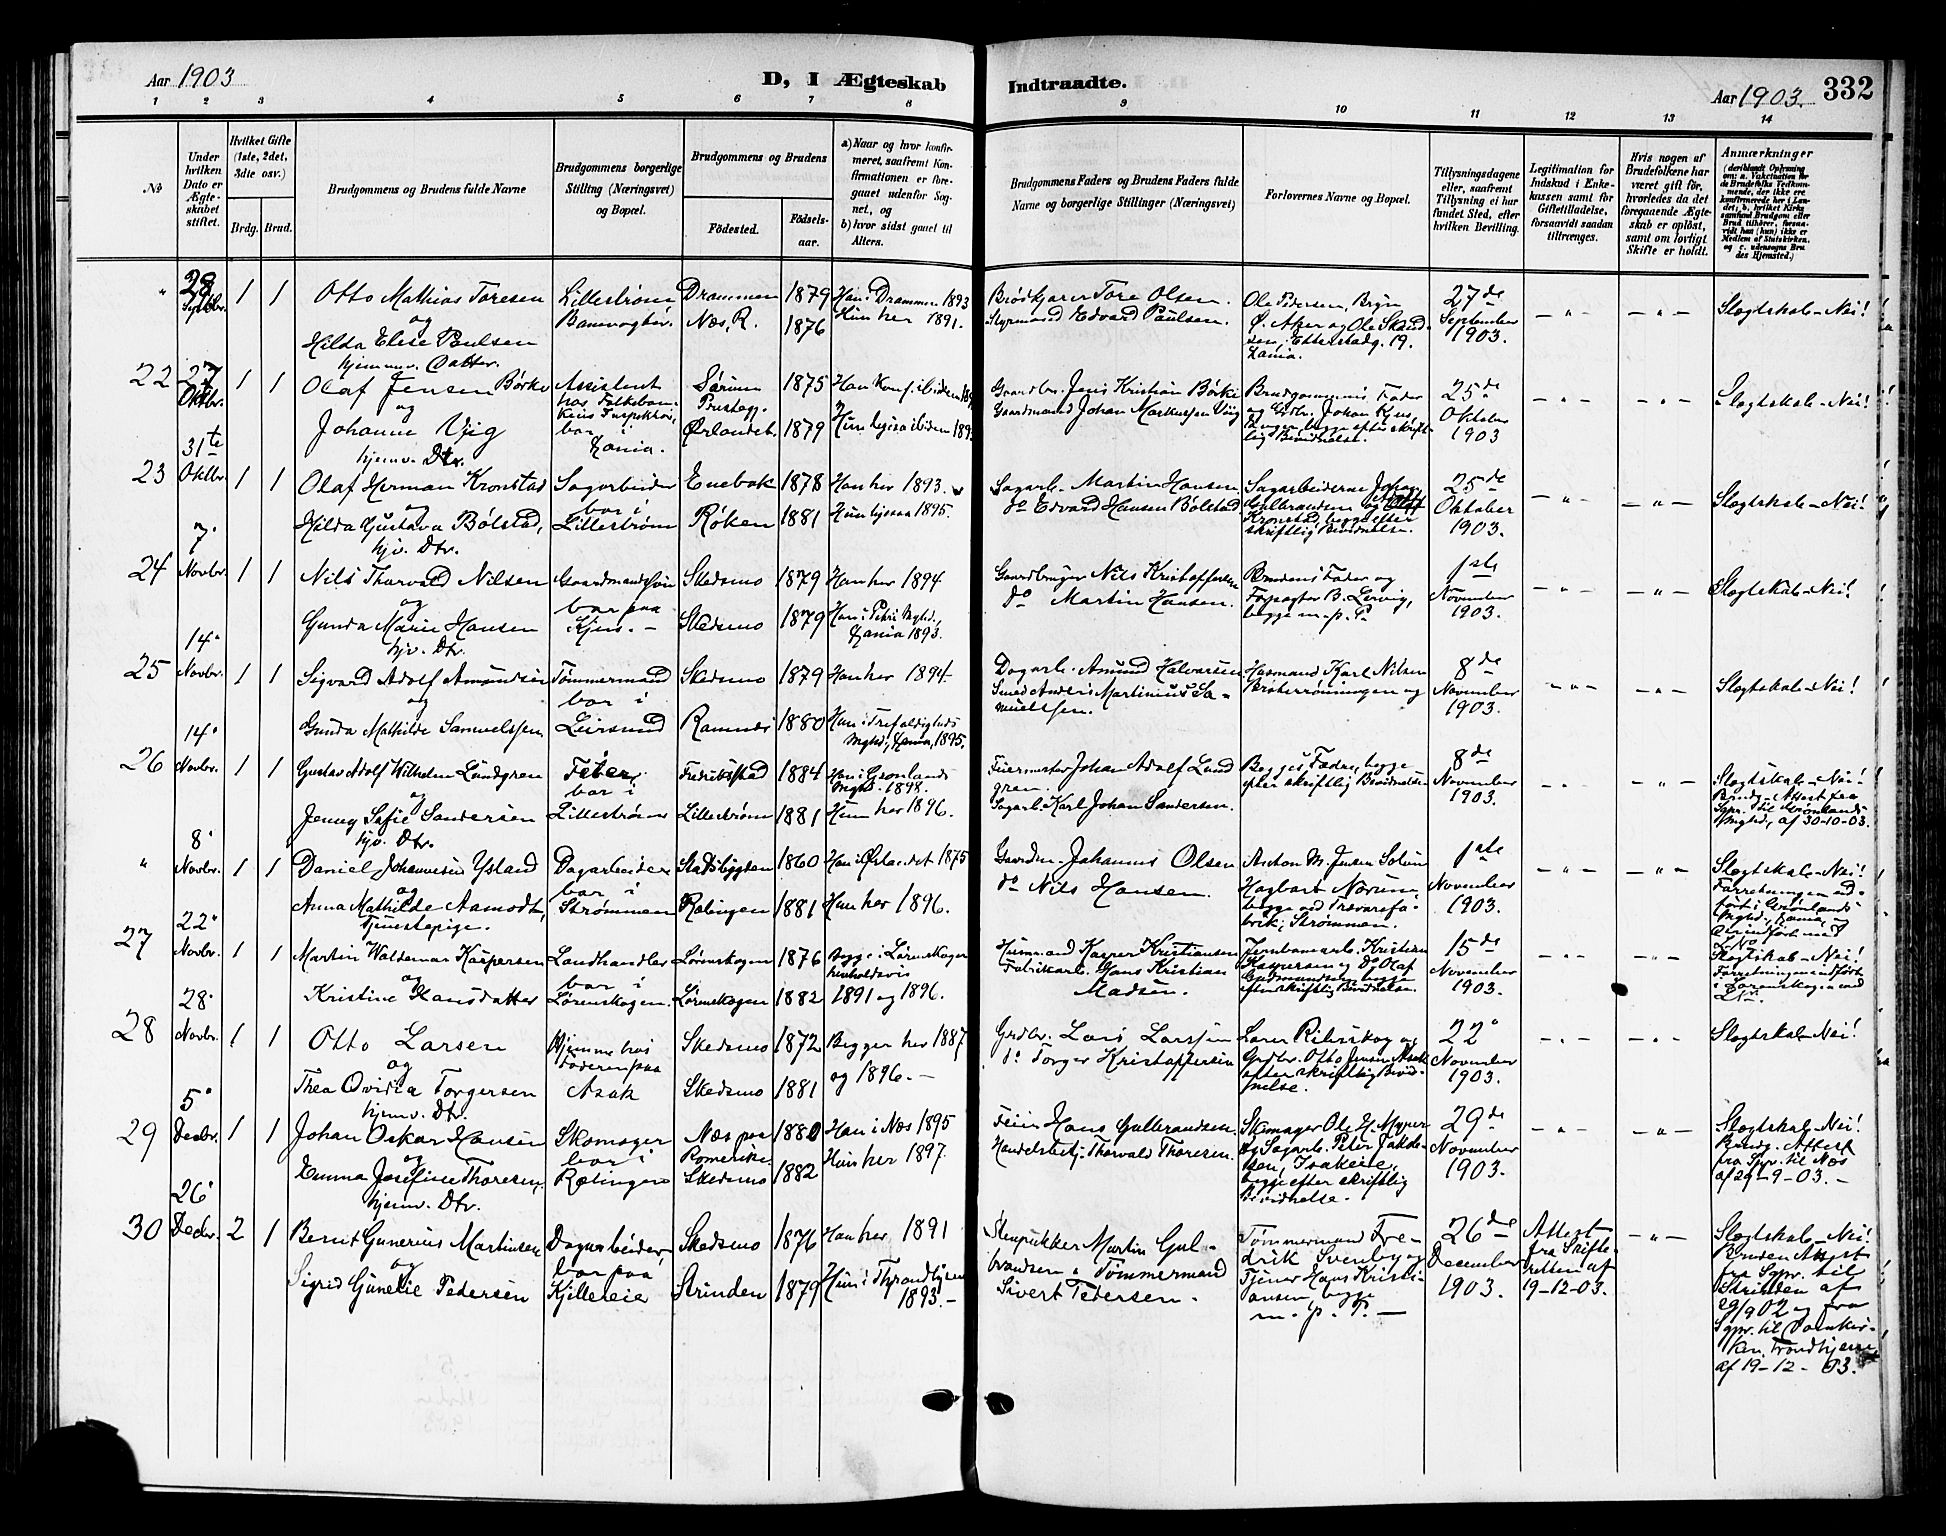 Aar 1903
D, I Ægteskab
Indtraadte.
Aar 1903.
332
1 2 3 4 5 6 7 8 9 10 11 12 13 14
No
Under hvilken Dato er Ægteskabet stiftet.
Hvilket Gifte (1ste, 2det, 3die osv.)
Brdg. Brud.
Brudgommens og Brudens fulde Navne
Brudgommens borgerlige Stilling (Næringsvei) og Bopæl.
Brudgommens og Brudens
Födested.
Födselsaar.
a) Naar og hvor konfirmeret, saafremt Konfirmationen er foregaaet udenfor Sognet, og
b) hvor sidst gaaet til Alters.
Brudgommens Faders og Brudens Faders fulde Navne og borgerlige Stillinger (Næringsvei)
Forlovernes Navne og Bopæl.
Tillysningsdagene eller, saafremt Tillysning ei har fundet Sted, efter hvilken Bevilling.
Legitimation for Indskud i Enkekassen samt for Giftetilladelse, forsaavidt saadan tiltrænges.
Hvis nogen af Brudefolkene har været gift för, hvorledes da det foregaaende Ægteskab er oplöst, samt om lovligt Skifte er holdt.
Anmærkninger
28 Septbr. 1 1 Otto Mathias Toresen Lillestrøm Drammen 1879 Han i Drammen 1893
og
Hilda Elise Paulsen Næs, R. 1876 Hun her 1891.
hjemmv. Datter.
Tore Olsen.
Styrmand Edvard Paulsen.
Ole Pedersen, Bryn Ø. Aker og Ole
27de September 1903. Slegtskab - Nei!
22 27 Oktbr. 1 1 Olaf Jensen Børke Assistent Sørum 1875
og
Johanne Viig Ørlandet 1879
hjemv. Dtr.
Gaardbr. Jens Kristian Børke
Gaardmand Johan Markussen Viig
Brudgommens Fader
25de Oktober 1903 Slegtskab - Nei!
23 31te Oktbr. 1 1 Olaf Herman Kronstad Sagarbeider Enebak 1878 Han her 1893.
og bor i
Hilda Gustava Bølstad, Lillestrøm Røken 1881 Hun ligesaa 1895.
hjv. Dtr.
Sagarb. Martin Hansen
do Edvard Hansen Bølstad
Sagarbeiderne Johan Gulbrandsen og Kronstad begge efter skriftlig Bevidnelse.
25de Oktober 1903. Slegtskab - Nei!
24 7. Novbr. 1 1 Nils Thorvald Nilsen Gaardmandssøn Skedsmo 1879 Han her 1894
og bor paa
Gunda Marie Hansen Kjus. Skedsmo 1879 Hun i Petri Mghd., Kania 1893.
hjv. Dtr.
Gaardbruger Nils Kristoffersen
do Martin Hansen.
Brudens Fader og Forpagter B. Lervig, begge m. p. P.
1ste November 1903. Slegtskab - Nei!
25 14. Novbr. 1 1 Sigvard Adolf Amundsen Tømmermand Skedsmo 1879 Han her 1894.
og bor i
Gunda Mathilde Samuelssen Leirsund Ramnæs 1880 Hun i Trefoldigheds Mghd., Kania, 1895.
Dagarb. Amund Halvorsen
Smed Anders Martinius Samuelssen.
Husmand Karl Nilsen
8de November 1903. Slegtskab - Nei!
26 14. Novbr. 1 1 Gustav Adolf Wilhelm Lundgren Feier, Fredriksstad 1884 Han i Grønlands Mghd. 1898.
og bor i
Jenny Sofie Sandersen Lillestrøm Lillestrøm 1881 Hun her 1896.
hjv. Dtr.
Feiermester Johan Adolf Lundgren.
Sagarb. Karl Johan Sandersen.
Begges Fædre, begge efter skriftlig Bevidnelse
8de November 1903. Slegtskab - Nei!
Brudg. Attest fra Sgpr. til Grønlands Mghd., af 30-10-03.
" 8. Novbr. 1 1 Daniel Johannesen Ystand Dagarbeider Stadsbygden 1860 Han i Ørlandet 1875
og bor i
Anna Mathilde Aamodt, Strømmen Rælingen 1881 Hun her 1896.
Tjenestepige.
Gaardm. Johannes Olsen
do Nils Hansen.
Anton M. Jensen
Hagbart Nærum
begge ved Trævarefabrik, Strømmen.
1ste November 1903. Slegtskab - Nei!
Forretningen udført i Grønlands Mghd., Kania,
27 22. Novbr. 1 1 Martin Waldemar Kaspersen Landhandler Lørenskogen 1876 Begge i Lørenskogen
og bor i henholdsvis
Kristine Hansdatter Lørenskogen. Lørenskogen 1882 1891 og 1896.
Husmand Kasper Kristiansen
Fabrikarb. Hans Kristian Madsen.
Jernbanearb. Kristian Kaspersen og do Olaf Gudmundsen, begge efter skriftlig Bevidnelse.
15de November 1903. Slegtskab - Nei!
28 28. Novbr. 1 1 Otto Larsen Hjemme hos Skedsmo 1872 Begge her 1887
og Faderen paa
Thea Ovidia Torgersen Asak Skedsmo 1881 og 1896.
hjemv. Dtr.
Grdbr. Lars Larssen
do Torger Kristoffersen
Grdbr. Otto Jensen Asak efter skriftlig Bevidnelse.
22. November 1903. Slegtskab - Nei!
29 5. Decbr. 1 1 Johan Oskar Hansen Skomager Næs paa Romerike. 1880 Han i Nes 1895
og bor i
Emma Josefine Thoresen, Rælingen Skedsmo 1882 Hun her 1897.
hjemv. Dtr.
Feier Hans Gulbrandsen
Handelsbetj. Thorvald Thoresen.
Skomager Ole H. Myrer og Sagarb. Peter Jakobsen, Isakeie, begge efter skriftlig Bevidnelse.
29de November 1903. Slegtskab - Nei!
Brudg. Attest fra Sgpr. til Næs af 29-9-03.
30 26. Decbr. 2 1 Bernt Gunerius Martinsen Dagarbeider Skedsmo 1876 Han her 1891
og bor paa
Sigrid Gunelie Pedersen Kjelleeie Strinden 1879 Hun i Throndhjem 1893.
Stenpukker Martin Gulbrandsen
Tømmermand Sivert Pedersen.
Tømmermand Fredrik Svenby og Tjener Hans Kristiansen, begge m. p. P.
26de December 1903. Attest fra Skifteretten af 19-12-03.
Slegtskab - Nei!
Bruden Attest fra Sgpr. til Strinden af 29/9 02 og fra Sgpr. til Domkirken, Trondhjem, af 19-12-03.